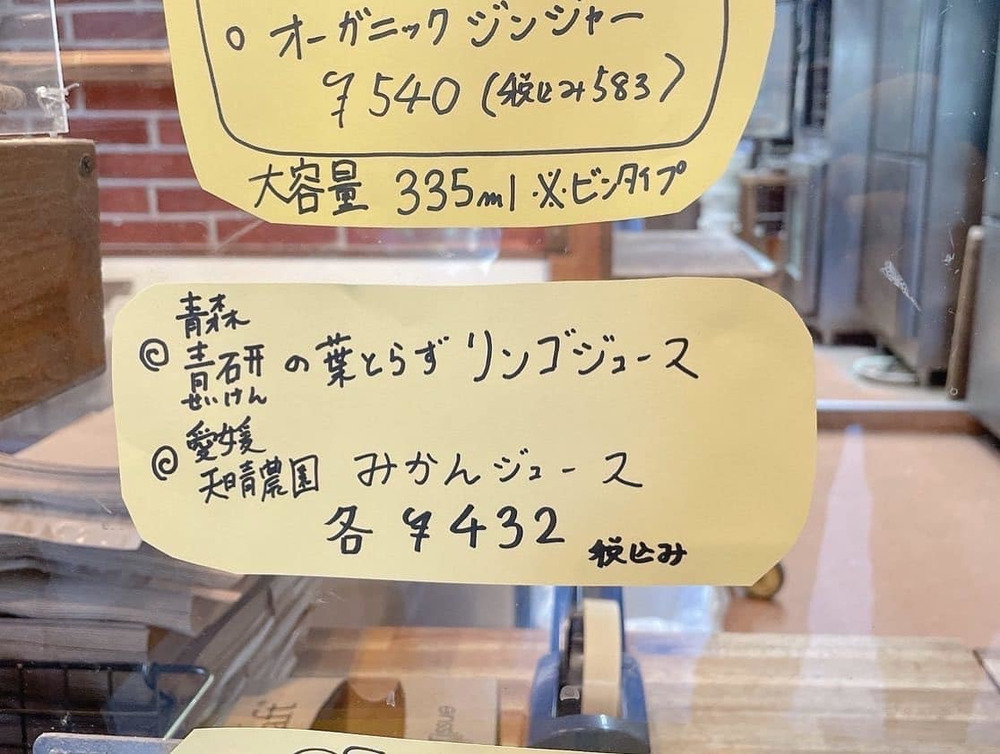 ○ オーガニックジンジャー
¥540 (税込み583)
大容量 335ml ※ビンタイプ
◎ 青森
青研の葉とらずリンゴジュース
せいけん
◎ 愛媛
天晴農園 みかんジュース
各 ¥432 税込み
Tissue